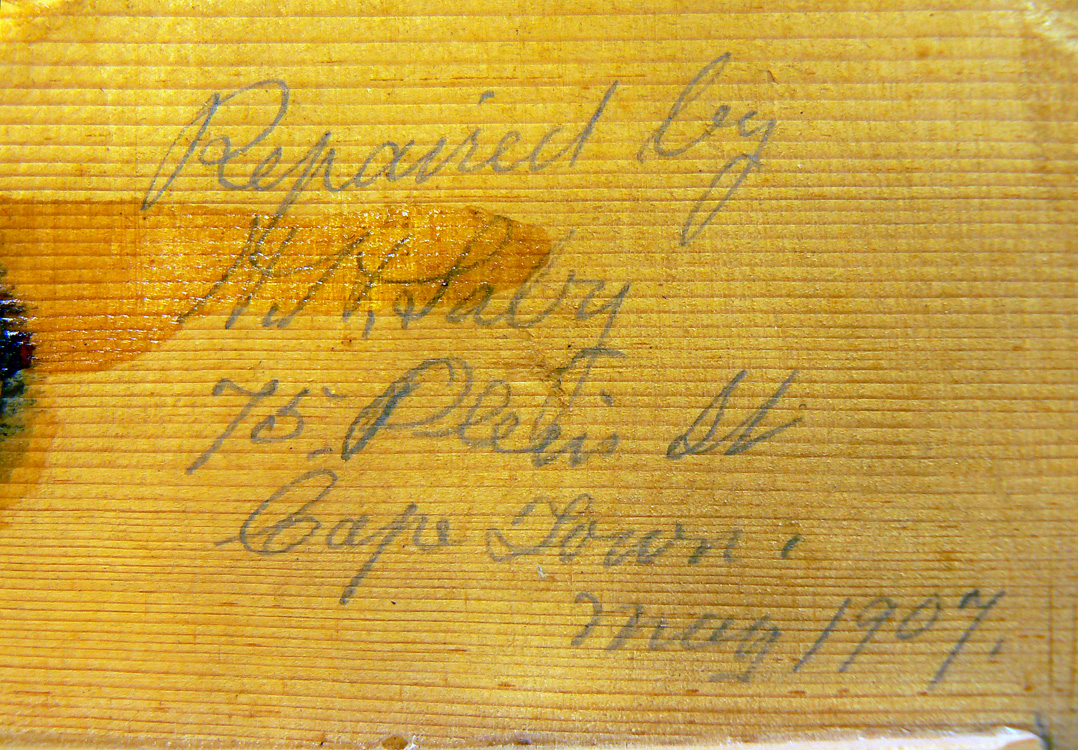 Repaired by
H. H. Salry
75 Plein St
Cape Town.
May 1907.